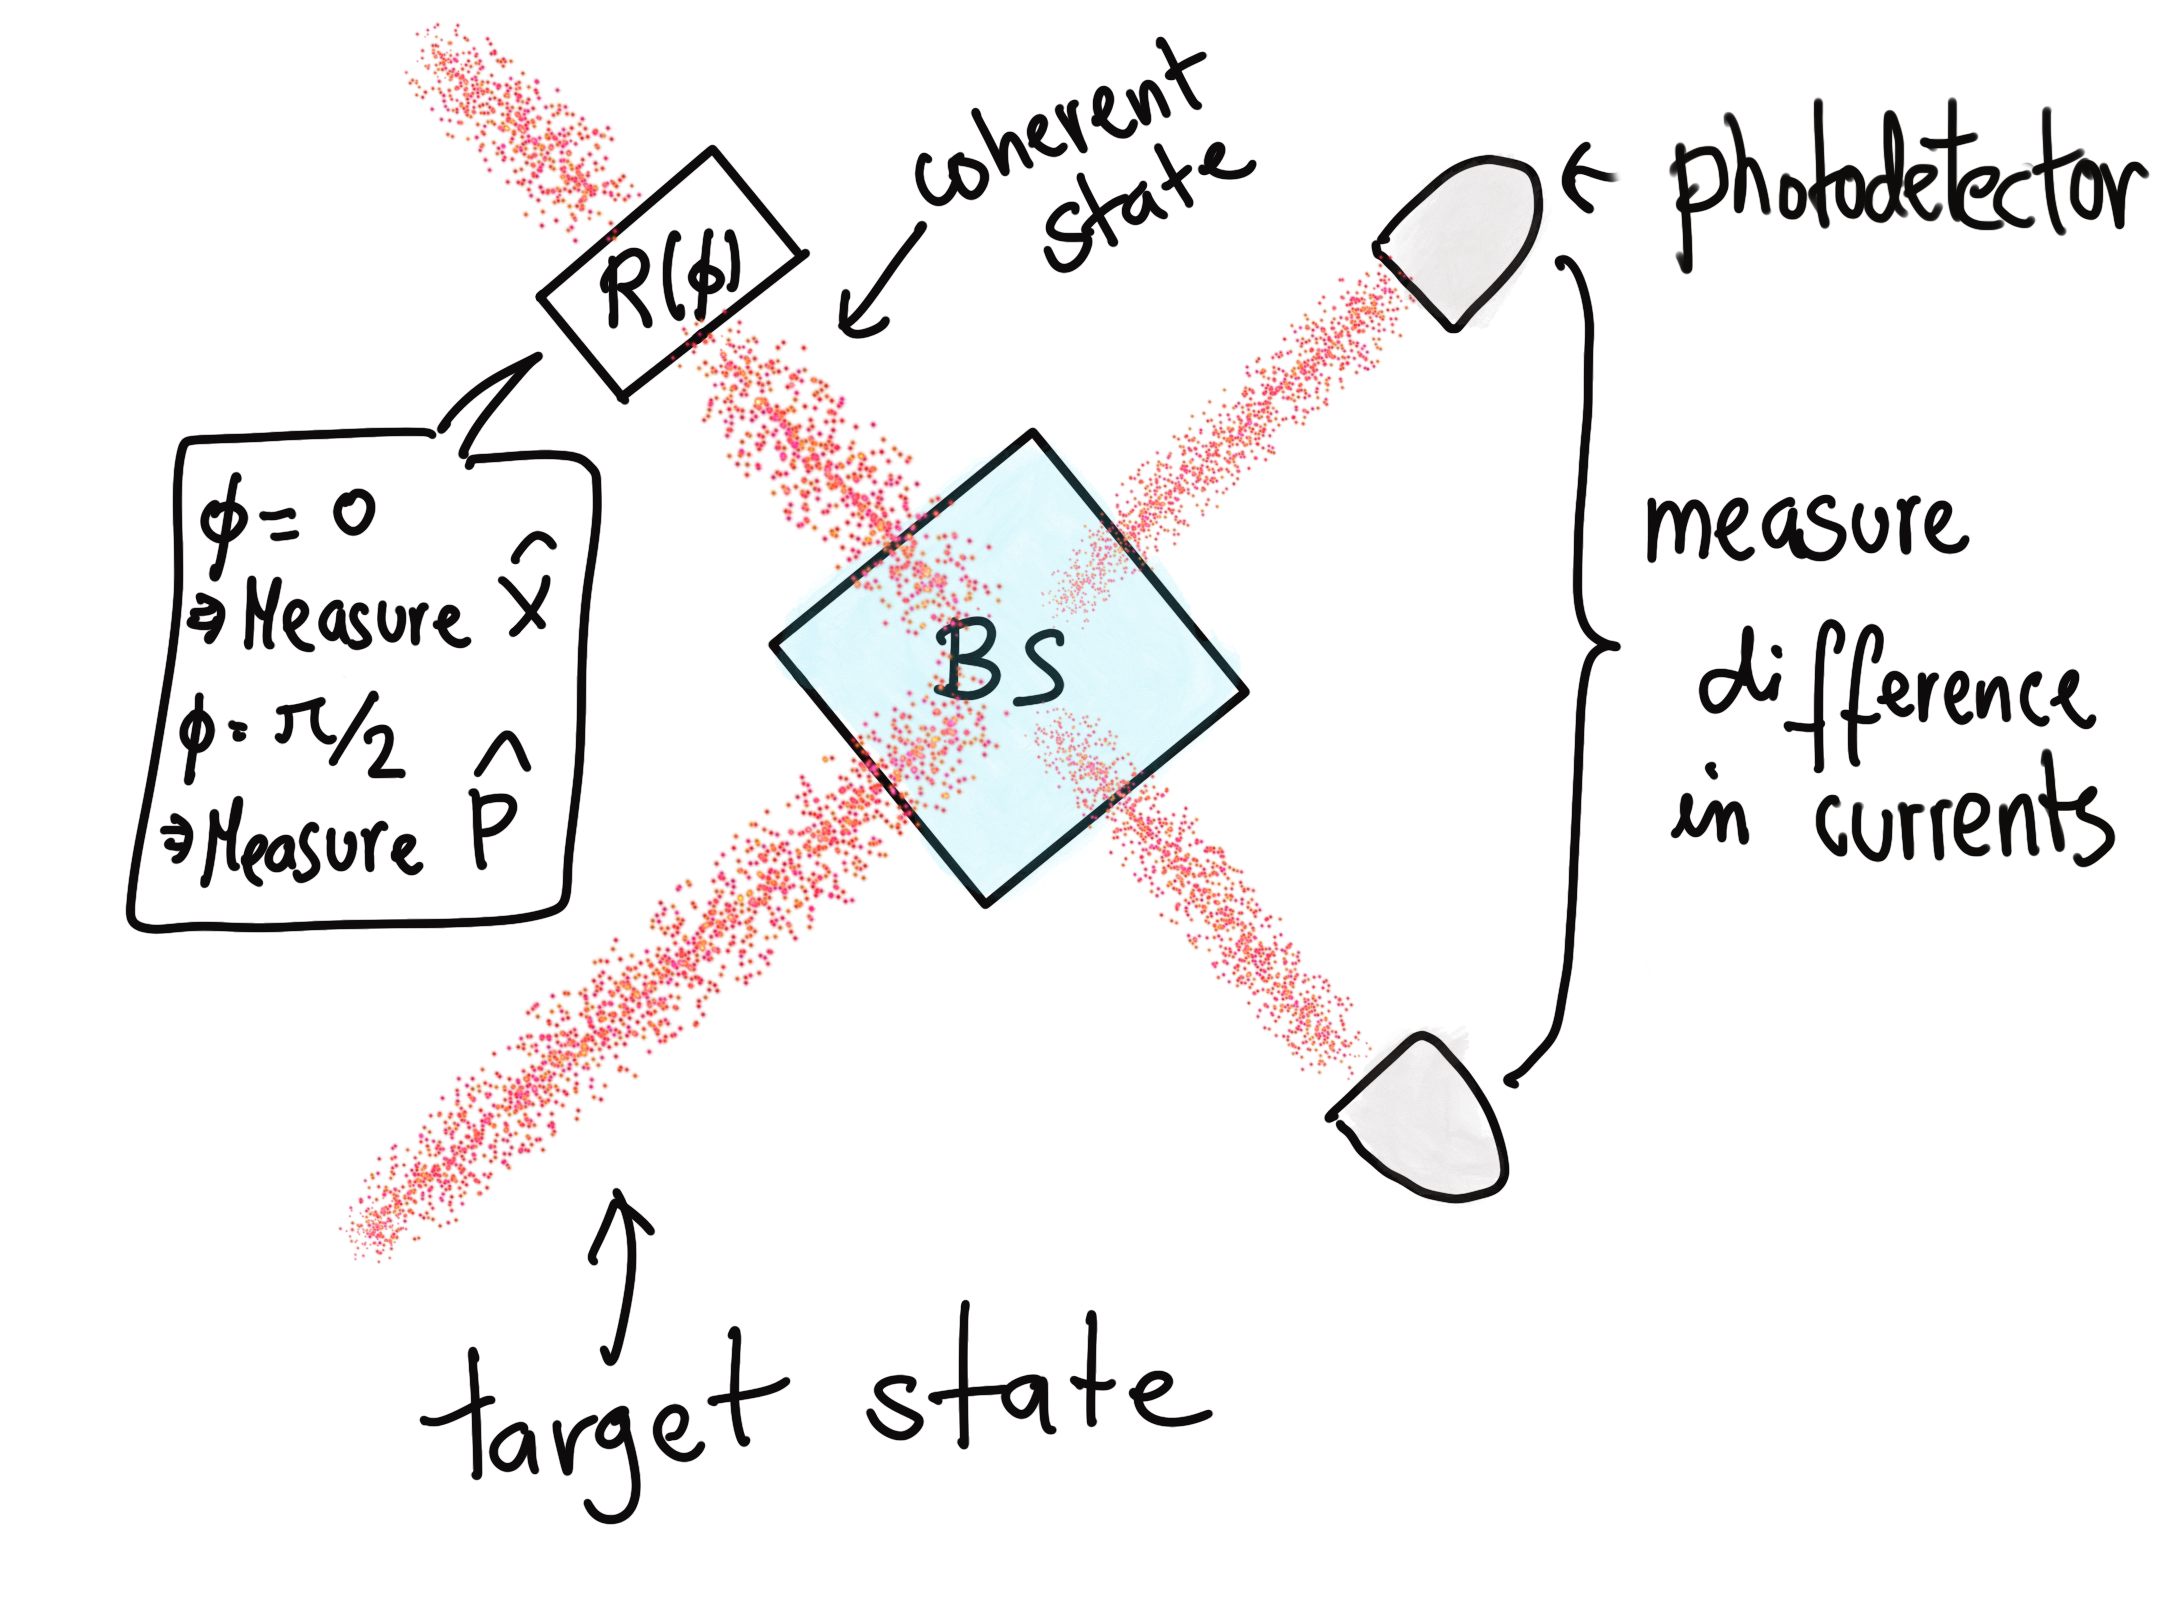 coherent
state
photodetector
R(ϕ)
ϕ = 0
⇒ Measure X̂
ϕ = π/2
⇒ Measure P̂
BS
measure
difference
in currents
target state